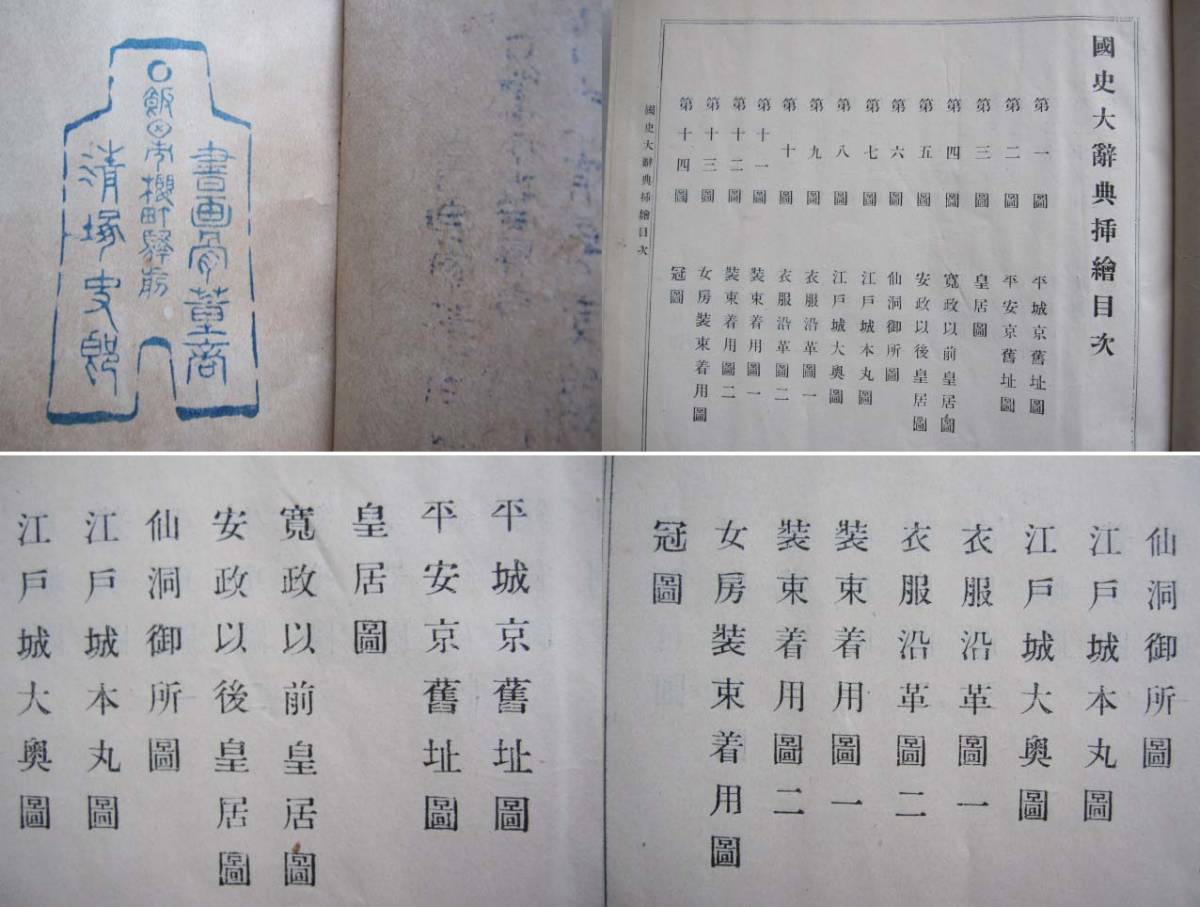 書画骨董商
飯田市櫻町驛前
清塚史郎
國史大辭典挿繪目次
第一圖 平城京舊址圖
第二圖 平安京舊址圖
第三圖 皇居圖
第四圖 寬政以前皇居圖
第五圖 安政以後皇居圖
第六圖 仙洞御所圖
第七圖 江戶城本丸圖
第八圖 江戶城大奧圖
第九圖 衣服沿革圖一
第十圖 衣服沿革圖二
第十一圖 裝束着用圖一
第十二圖 裝束着用圖二
第十三圖 女房裝束着用圖
第十四圖 冠圖
國史大辭典挿繪目次
平城京舊址圖
平安京舊址圖
皇居圖
寬政以前皇居圖
安政以後皇居圖
仙洞御所圖
江戶城本丸圖
江戶城大奧圖
仙洞御所圖
江戶城本丸圖
江戶城大奧圖
衣服沿革圖一
衣服沿革圖二
裝束着用圖一
裝束着用圖二
女房裝束着用圖
冠圖